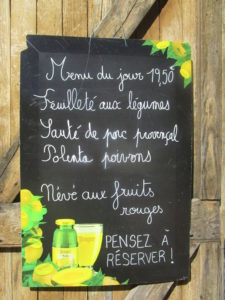 Menu du jour 19,50
Feuilleté aux légumes
Sauté de porc provençal
Polenta poivrons
Névé aux fruits
rouges
PENSEZ À
RÉSERVER !